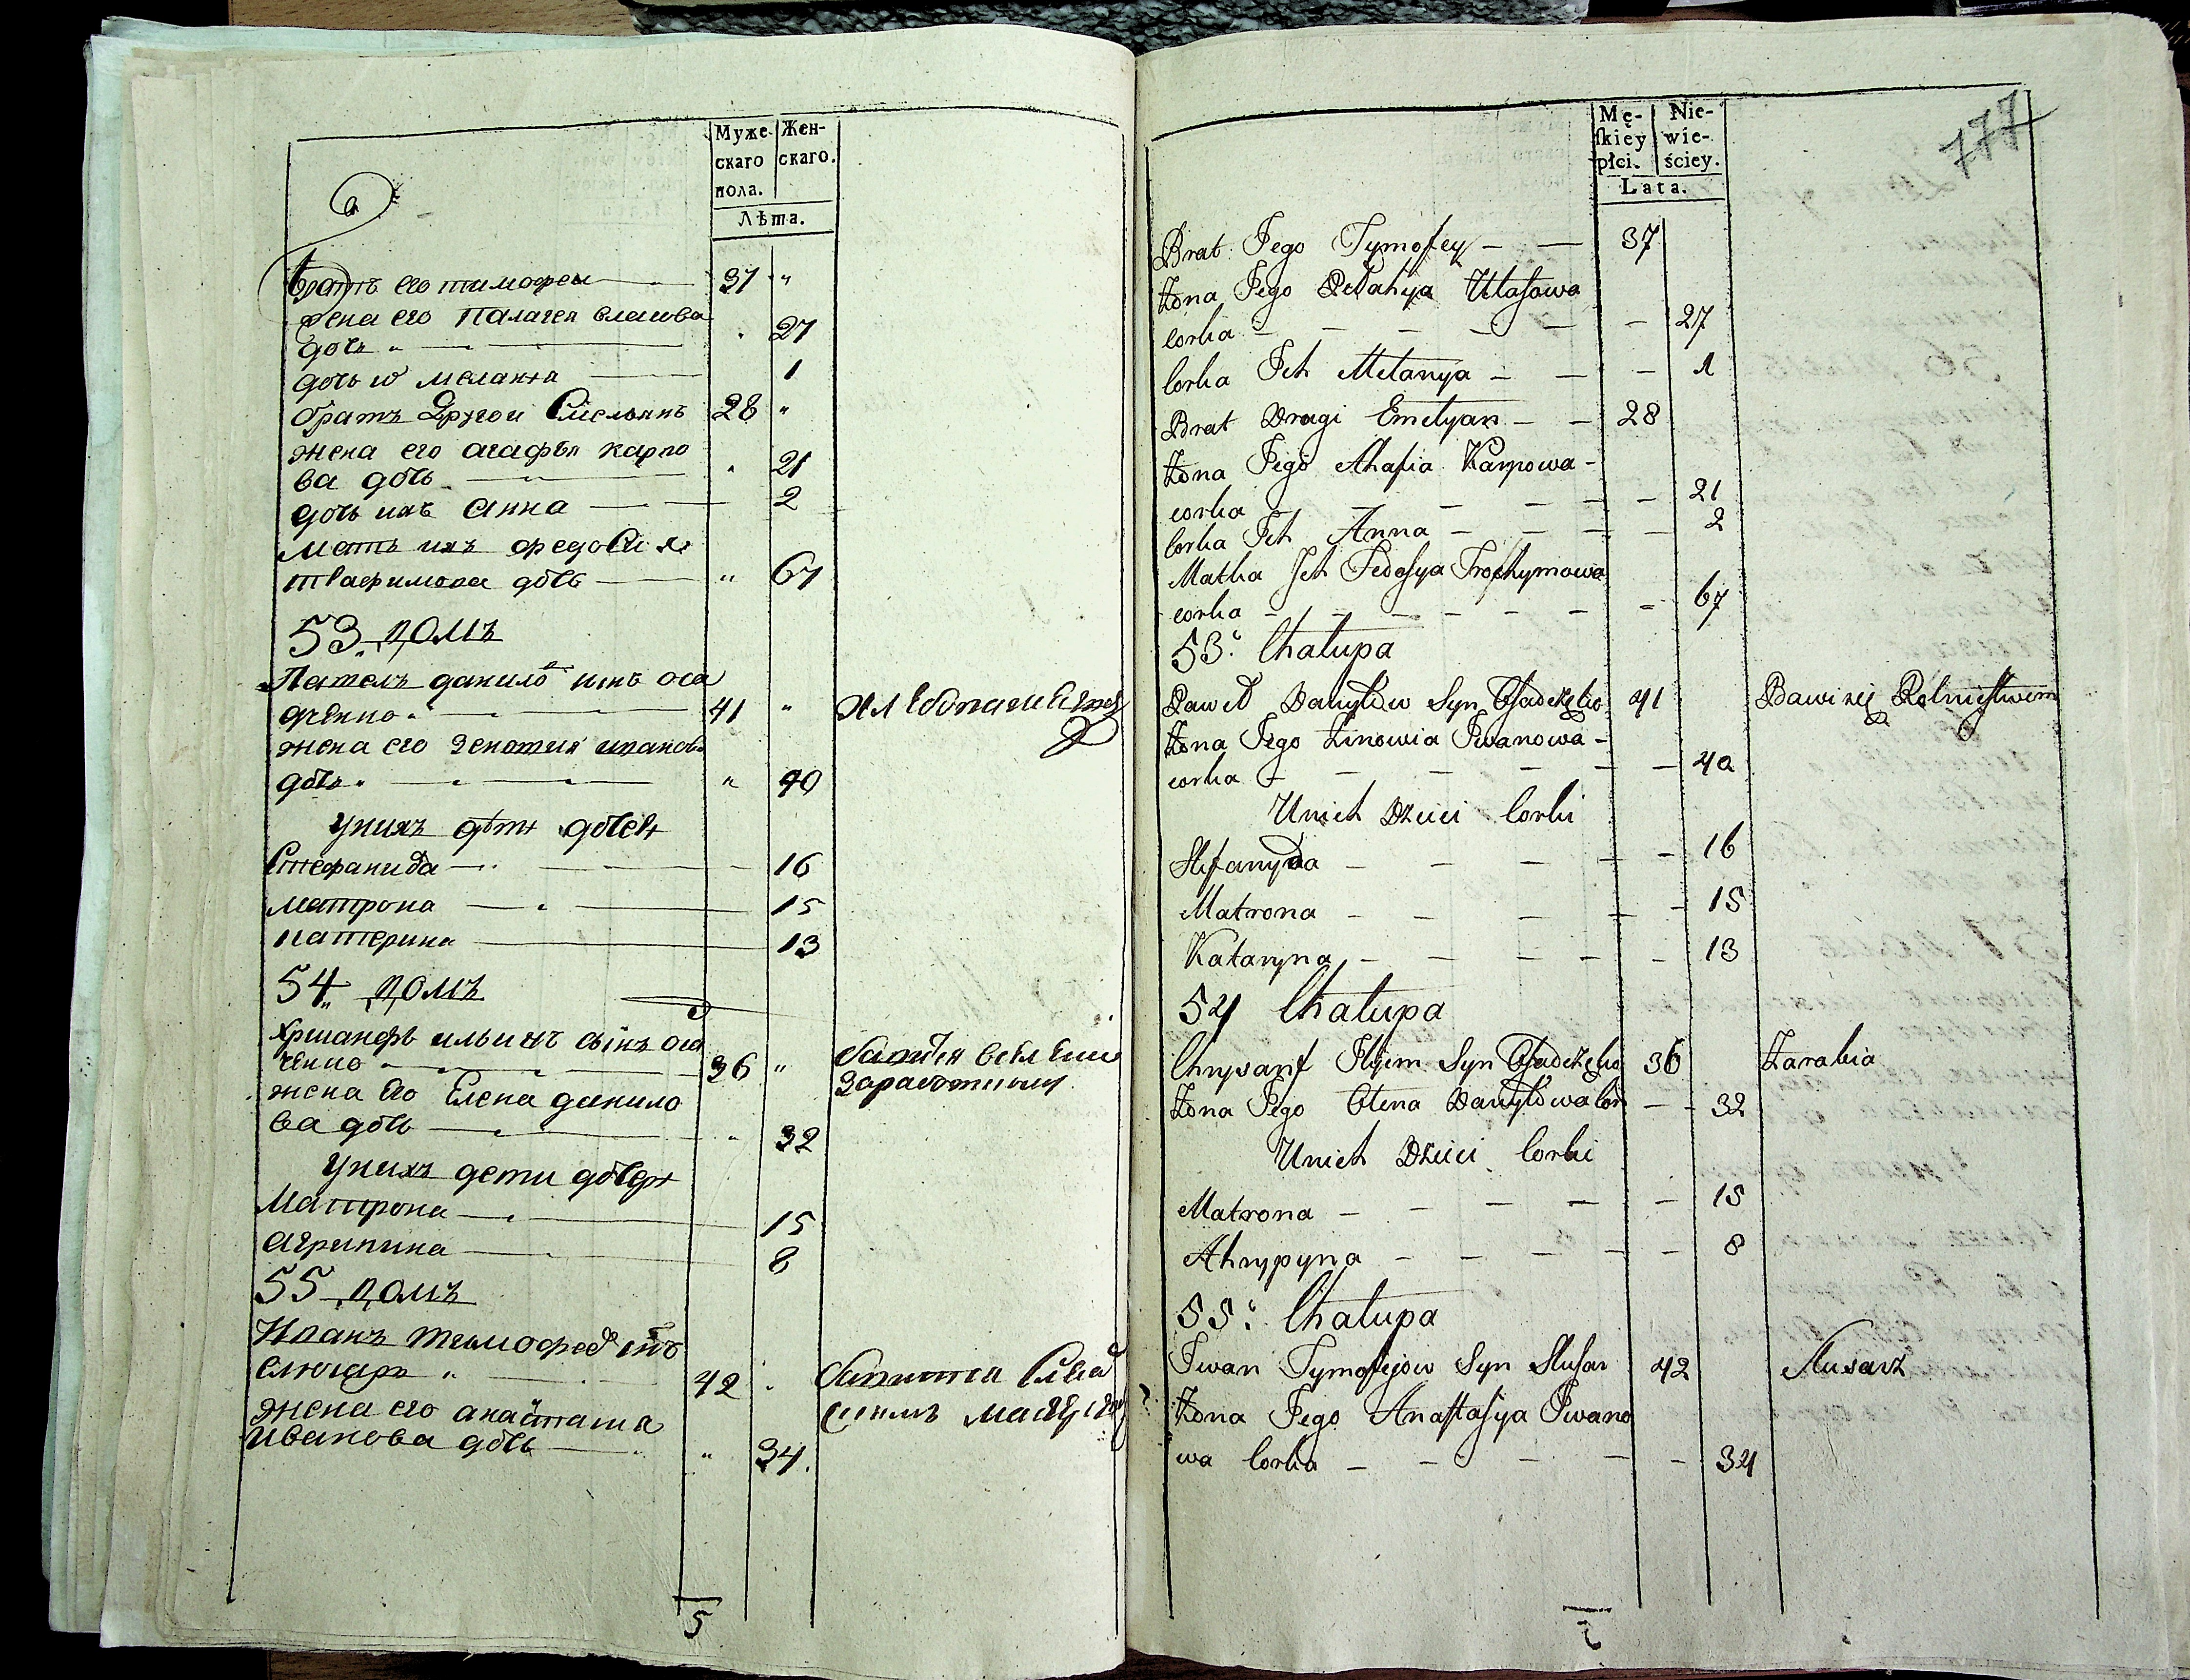 Муже-
скаго
пола.
Жен-
скаго.
Лѣта.
братъ его тимофеи 37 "
жена его Палагея власова
дочь " 27
дочь их меланья 1
братъ Другои Емельянъ 28 "
жена его агафья карпо
ва дочь 21
дочь ихъ анна 2
мать ихъ федосия
трафимова дочь " 67
53. домъ
Павелъ данилов сынъ оса
дченко 41 " хлебопашествомъ
жена его Зеновия иванова
дочь " " 40
У нихъ дѣти дочери
Стефанида 16
матрона 15
катерина 13
54 домъ
Хрисанфъ ильинъ сынъ оса
ченко 36 "
заработками
жена его Елена данило
ва дочь 32
У нихъ дети дочери
Матрона 15
агрипина 8
55 домъ
Иванъ тимофеев снъ
слюсаръ " 42
жена его анастасия
иванова дочь " 34.
5
Mę-
ſkiey
płci.
Nie-
wie-
ściey.
Lata.
777
Brat Jego Tymofey 37
Żona Jego Pelahya Ułaſowa
corka 27
Corka Jch Melanya 1
Brat Drugi Emelyan 28
Żona Jego Ahafia Karpowa
corka 21
Corka Jch Anna 2
Matka Jch Fedoſya Trofhymowa
corka 67
53. Chałupa
Paweł Daniłow Syn Oſadczęko 41 Bawi się Rolnictwem
Żona Jego Zinowia Jwanowa
corka 40
Unich Dzieci Corki
Stefanyda 16
Matrona 15
Kataryna 13
54 Chałupa
Chrysanf Jljem Syn Oſadczęko 36 Zarabia
Żona Jego Olena Daniłowa Cor 32
Unich Dzieci Corki
Matrona 15
Ahrypyna 8
55. Chałupa
Jwan Tymofiejow Syn Slusar 42 Slusarz
Żona Jego Anaſtaſiya Jwano
wa Corka 34